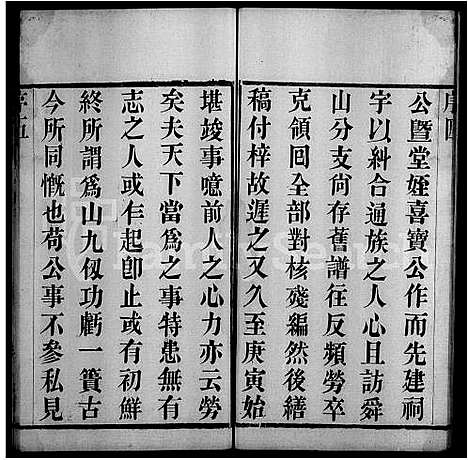 公曁堂姪喜寶公作而先建祠
宇以糾合通族之人心且訪舜
山分支尙存舊譜往反頻勞卒
克領囘全部對核殘編然後繕
稿付梓故遲之又久至庚寅始
堪竣事噫前人之心力亦云勞
矣夫天下當爲之事特患無有
志之人或乍起卽止或有初鮮
終所謂爲山九仭功虧一簣古
今所同慨也苟公事不參私見